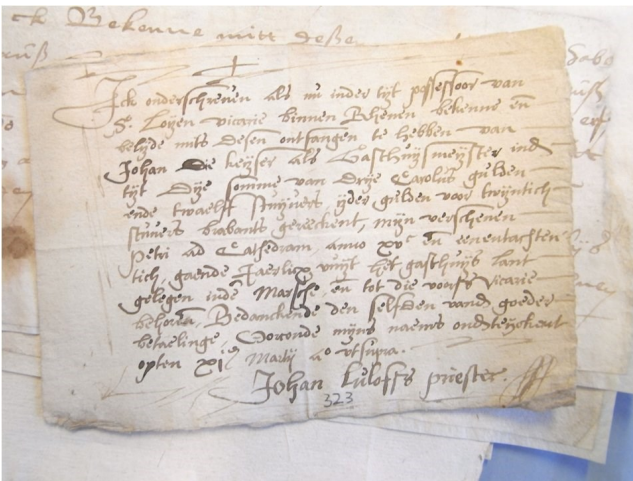 ck Bekenne mitt deße
Ick onderschreven als nu inder tijt possessoor van
St. Loyen vicarie binnen Rhenen bekenne en
belijde mits desen ontfangen te hebben van
Johan die keyser als Gasthuysmeyster ind
tijt Dye somme van drye Carolus gulden
ende twaelff stuyvers, yder gulden voor twijntich
stuvers brabants gereeckent, mijn verschenen
Petri ad Cathedram anno xvc en eenentachten
tich, gaende Jaerlicx vuyt het gasthuys lant
gelegen inde Marsche, en tot die voors vicarie
behoren, Bedanckende den selfden vand goeder
betaelinge, Oorconde mijns naems onderteyckent
opten xien Martij ao vtsupra.
Johan Luloffs priester
323